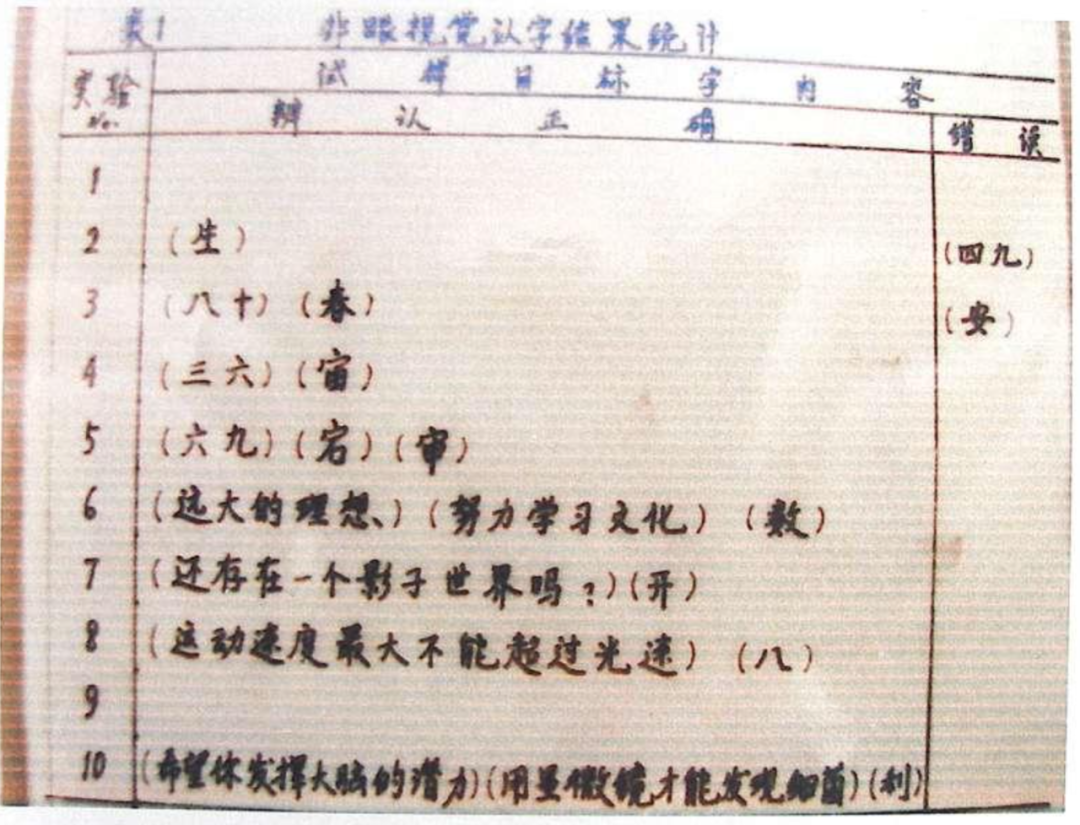 表1 非眼视觉认字结果统计
实验 No. 试样目标字内容
辨认正确 错误
1
2 (生) (四九)
3 (八十) (春) (安)
4 (三六) (宙)
5 (六九) (宕) (审)
6 (远大的理想、) (努力学习文化) (数)
7 (还存在一个影子世界吗?) (开)
8 (运动速度最大不能超过光速) (八)
9
10 (希望你发挥大脑的潜力) (用显微镜才能发现细菌) (利)